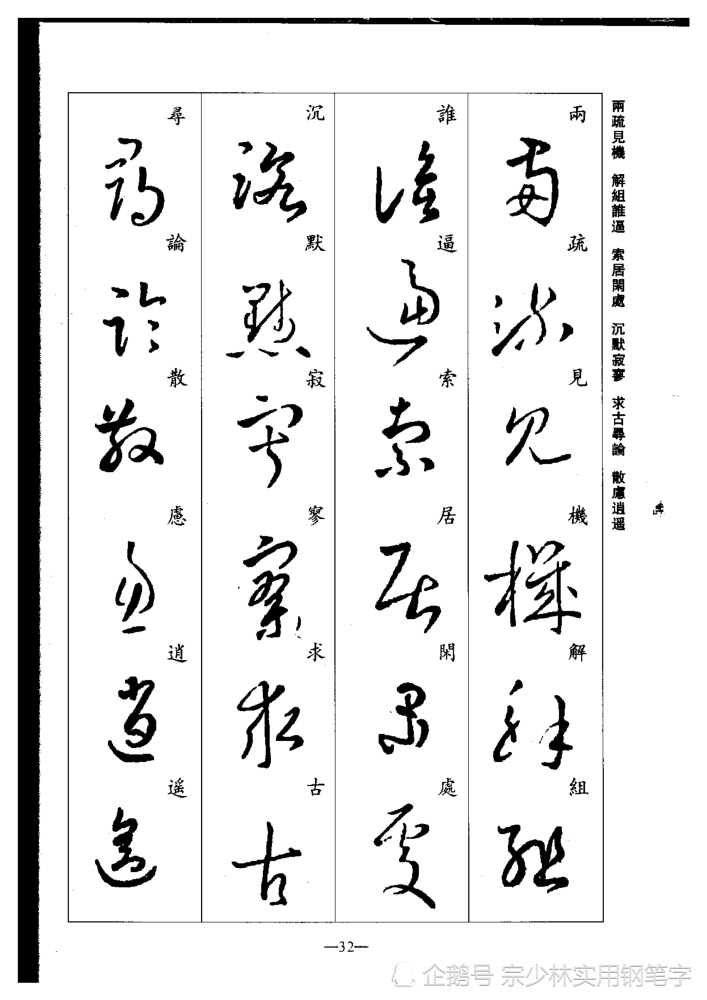 兩疏見機 解組誰逼 索居閑處 沉默寂寥 求古尋論 散慮逍遥
兩疏見機解組
誰逼索居閑處
沉默寂寥求古
尋論散慮逍遥
—32—
企鹅号 宗少林实用钢笔字